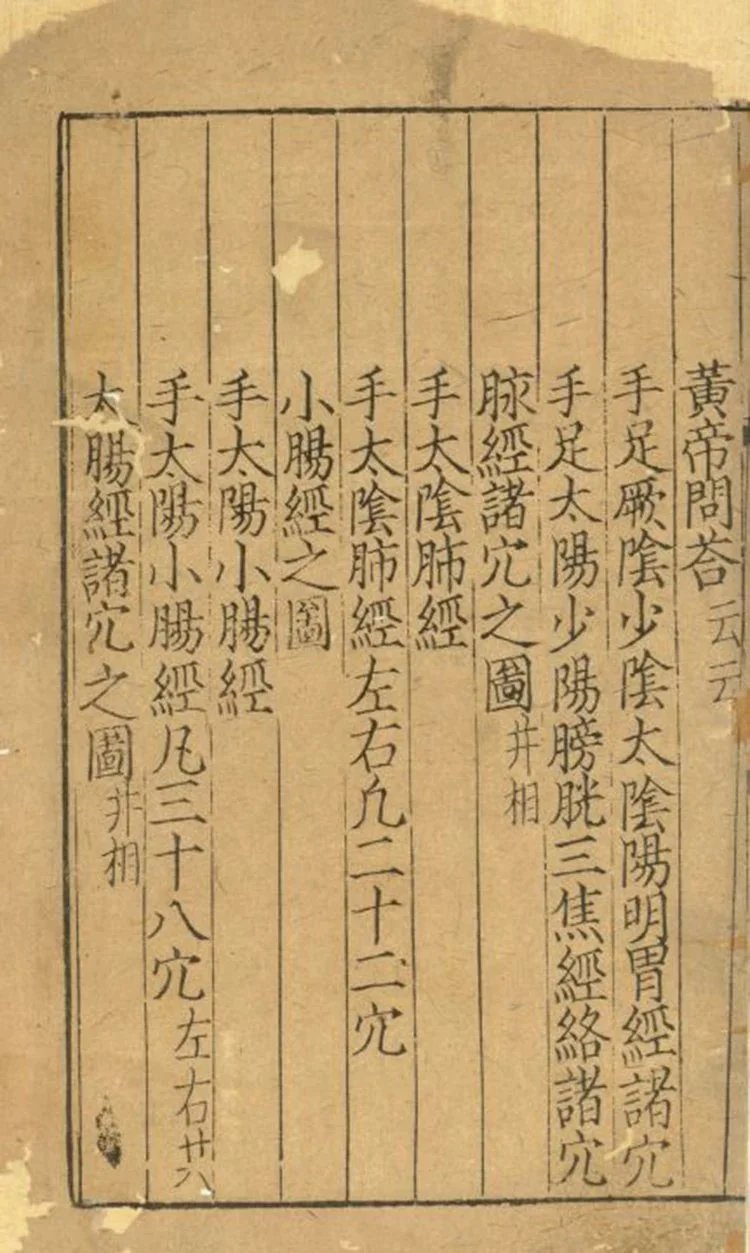 黃帝問荅云云
手足厥陰少陰太陰陽明胃經諸穴
手足太陽少陽膀胱三焦經絡諸穴
脉經諸穴之圖井相
手太陰肺經
手太陰肺經左右凡二十二穴
小腸經之圖
手太陽小腸經
手太陽小腸經凡三十八穴左右廿八
太腸經諸穴之圖井相